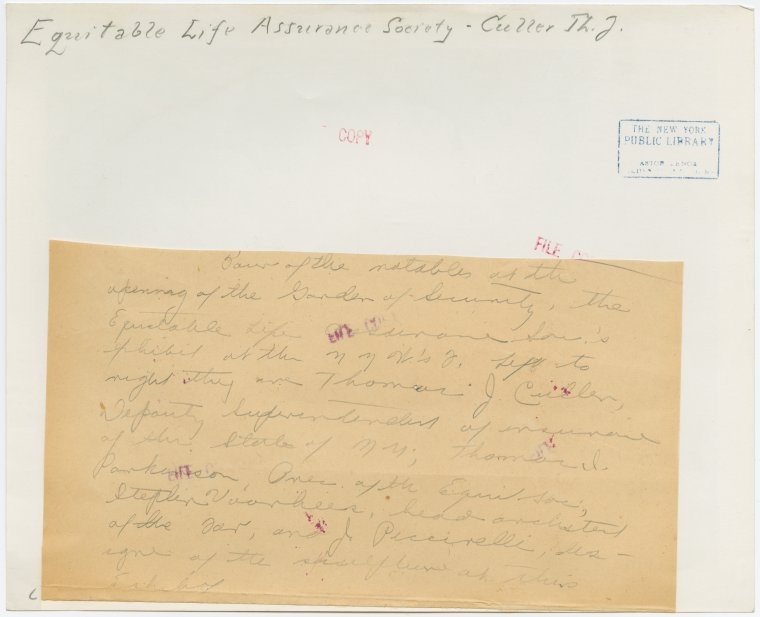 Equitable Life Assurance Society - Culler Th. J.
COPY
THE NEW YORK
PUBLIC LIBRARY
ASTOR LENOX
FILE
Four of the notables at the
opening of the Garden of Security, the
Equitable Life Assurance Soc.'s
exhibit at the N Y W's F. Left to
right they are Thomas J. Cullen,
Deputy Superintendent of insurance
of the State of N Y, Thomas I.
Parkinson, Pres. of th Equit Soc.,
Stephen Voorhees, head architect
of the Fair, and J. Piccirelli, des-
igner of the sculpture at this
Exhibit